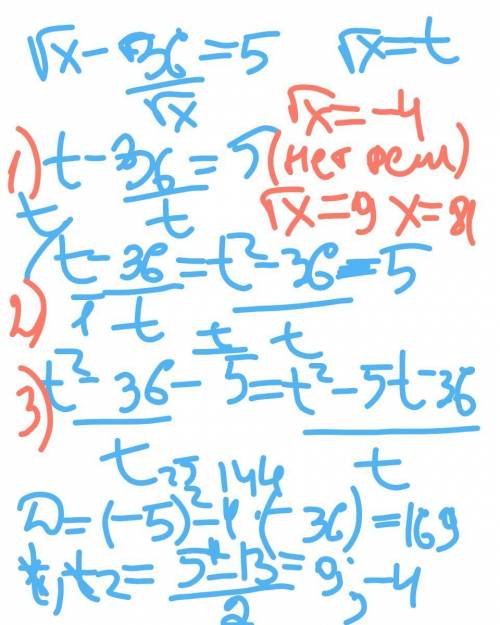 √x − 36/√x = 5    √x = t
√x = −4
1) t − 36/t = 5 (нет реш)
√x = 9 x = 81
2) t/1 − 36/t = (t² − 36)/t = 5
3) (t² − 36)/t − 5 = (t² − 5t − 36)/t
25 144
D = (−5)² − 4 · (−36) = 169
t₁, t₂ = (5 ± 13)/2 = 9; −4